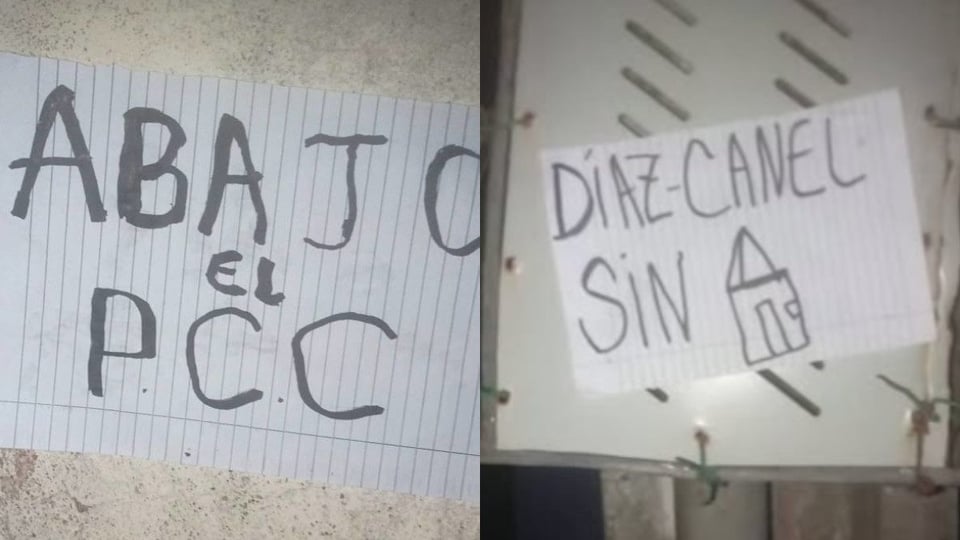 ABAJO
EL
P.C.C
DÍAZ-CANEL
SIN